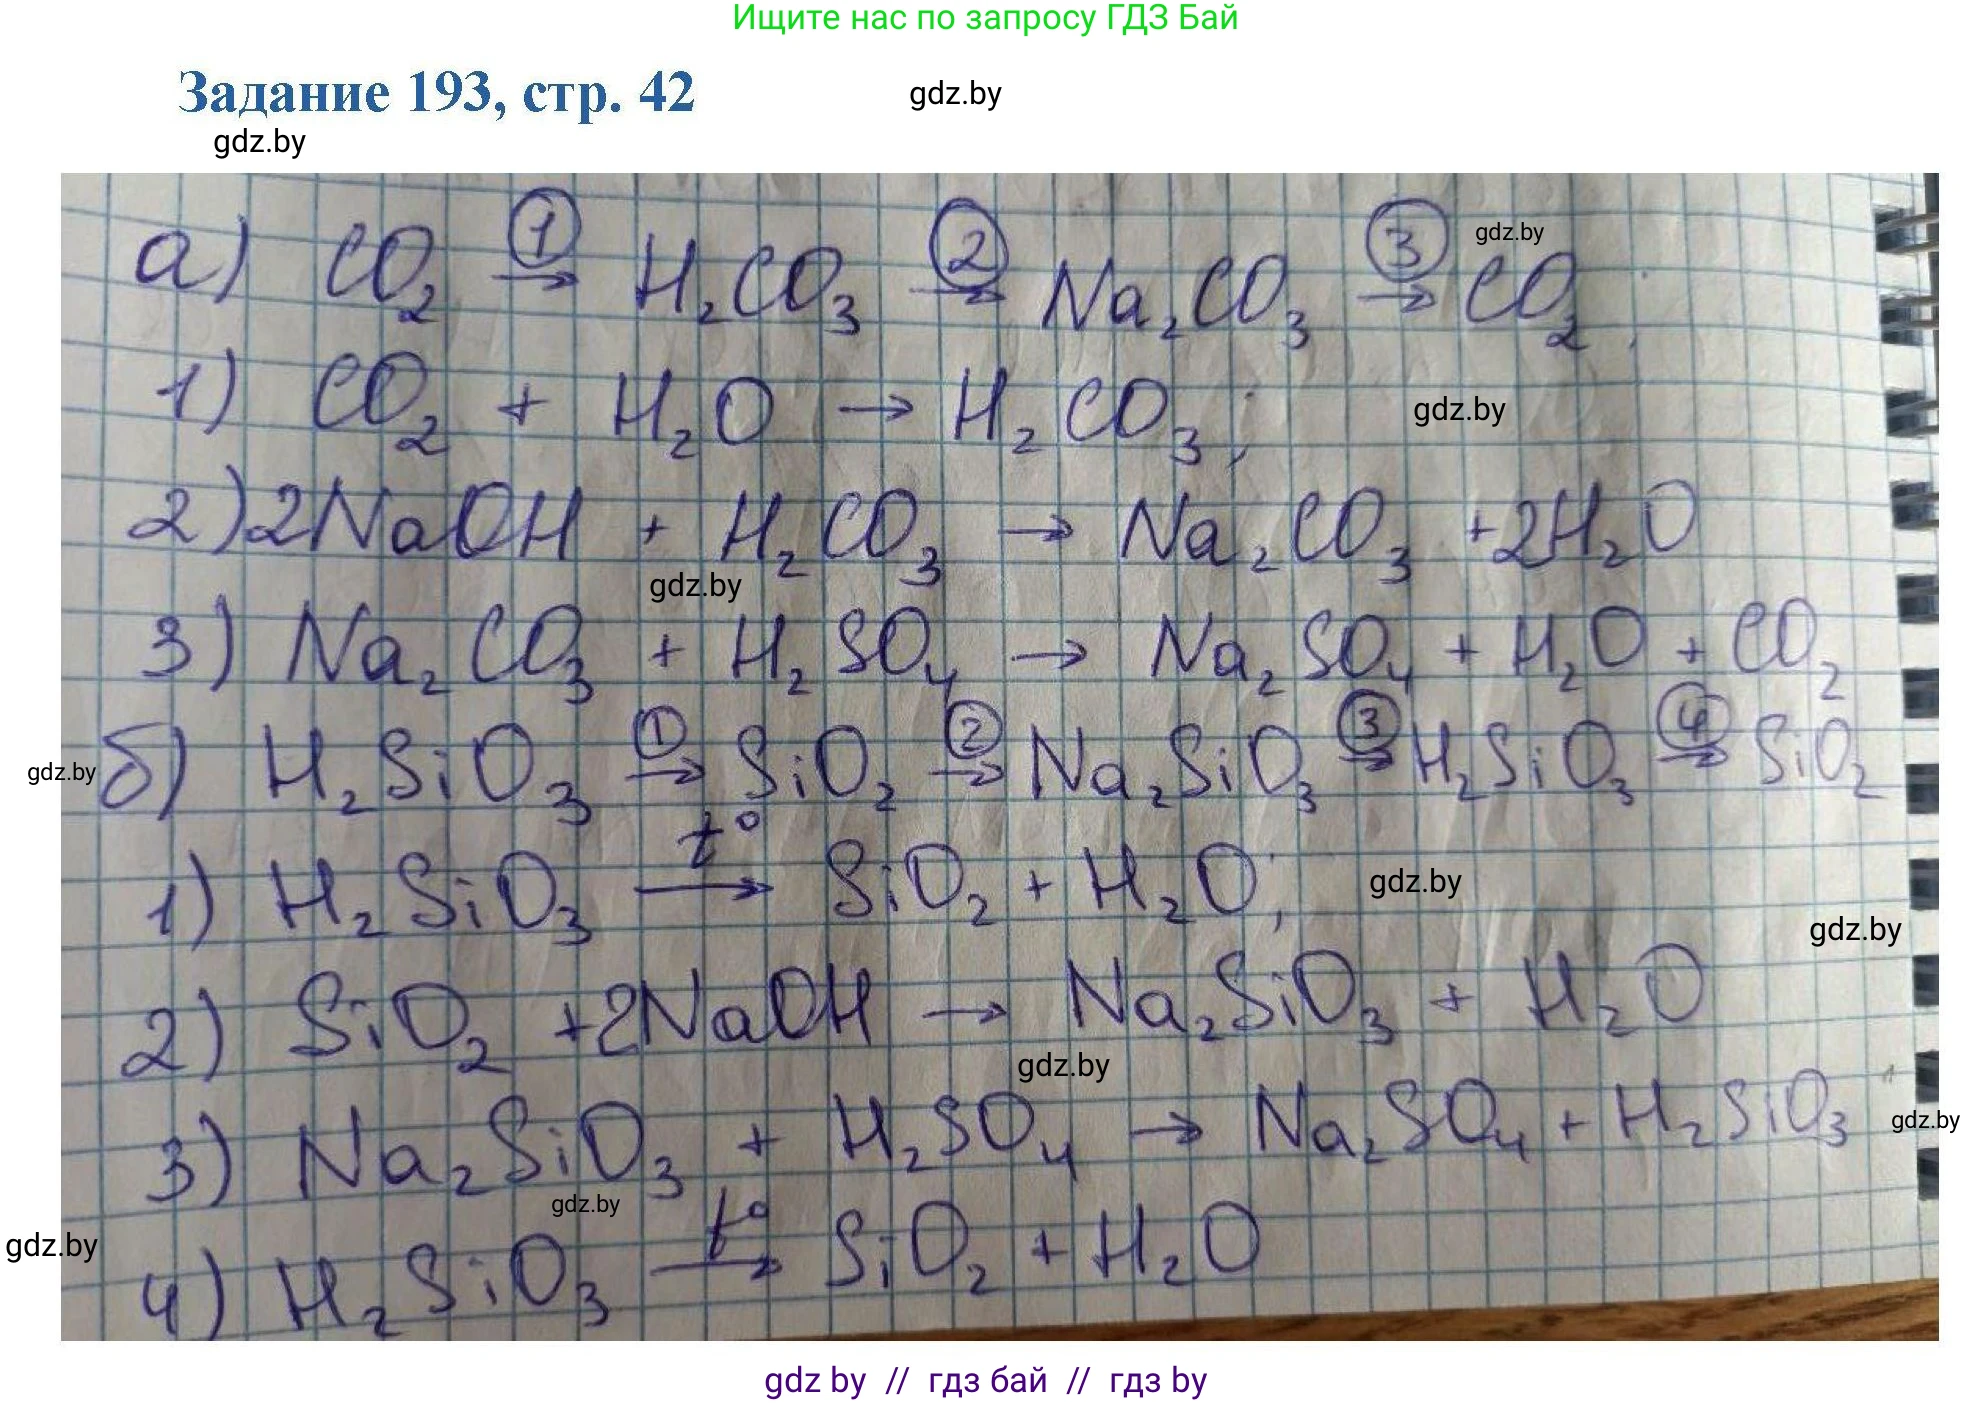 Ищите нас по запросу ГДЗ Бай
Задание 193, стр. 42
gdz.by
gdz.by
а) CO₂ →① H₂CO₃ →② Na₂CO₃ →③ CO₂;
gdz.by
1) CO₂ + H₂O → H₂CO₃;
gdz.by
2) 2NaOH + H₂CO₃ → Na₂CO₃ + 2H₂O
gdz.by
3) Na₂CO₃ + H₂SO₄ → Na₂SO₄ + H₂O + CO₂
б) H₂SiO₃ →① SiO₂ →② Na₂SiO₃ →③ H₂SiO₃ →④ SiO₂
gdz.by
1) H₂SiO₃ →t° SiO₂ + H₂O;
gdz.by
gdz.by
2) SiO₂ + 2NaOH → Na₂SiO₃ + H₂O
gdz.by
3) Na₂SiO₃ + H₂SO₄ → Na₂SO₄ + H₂SiO₃
gdz.by
gdz.by
gdz.by
4) H₂SiO₃ →t° SiO₂ + H₂O
gdz by // гдз бай // гдз by